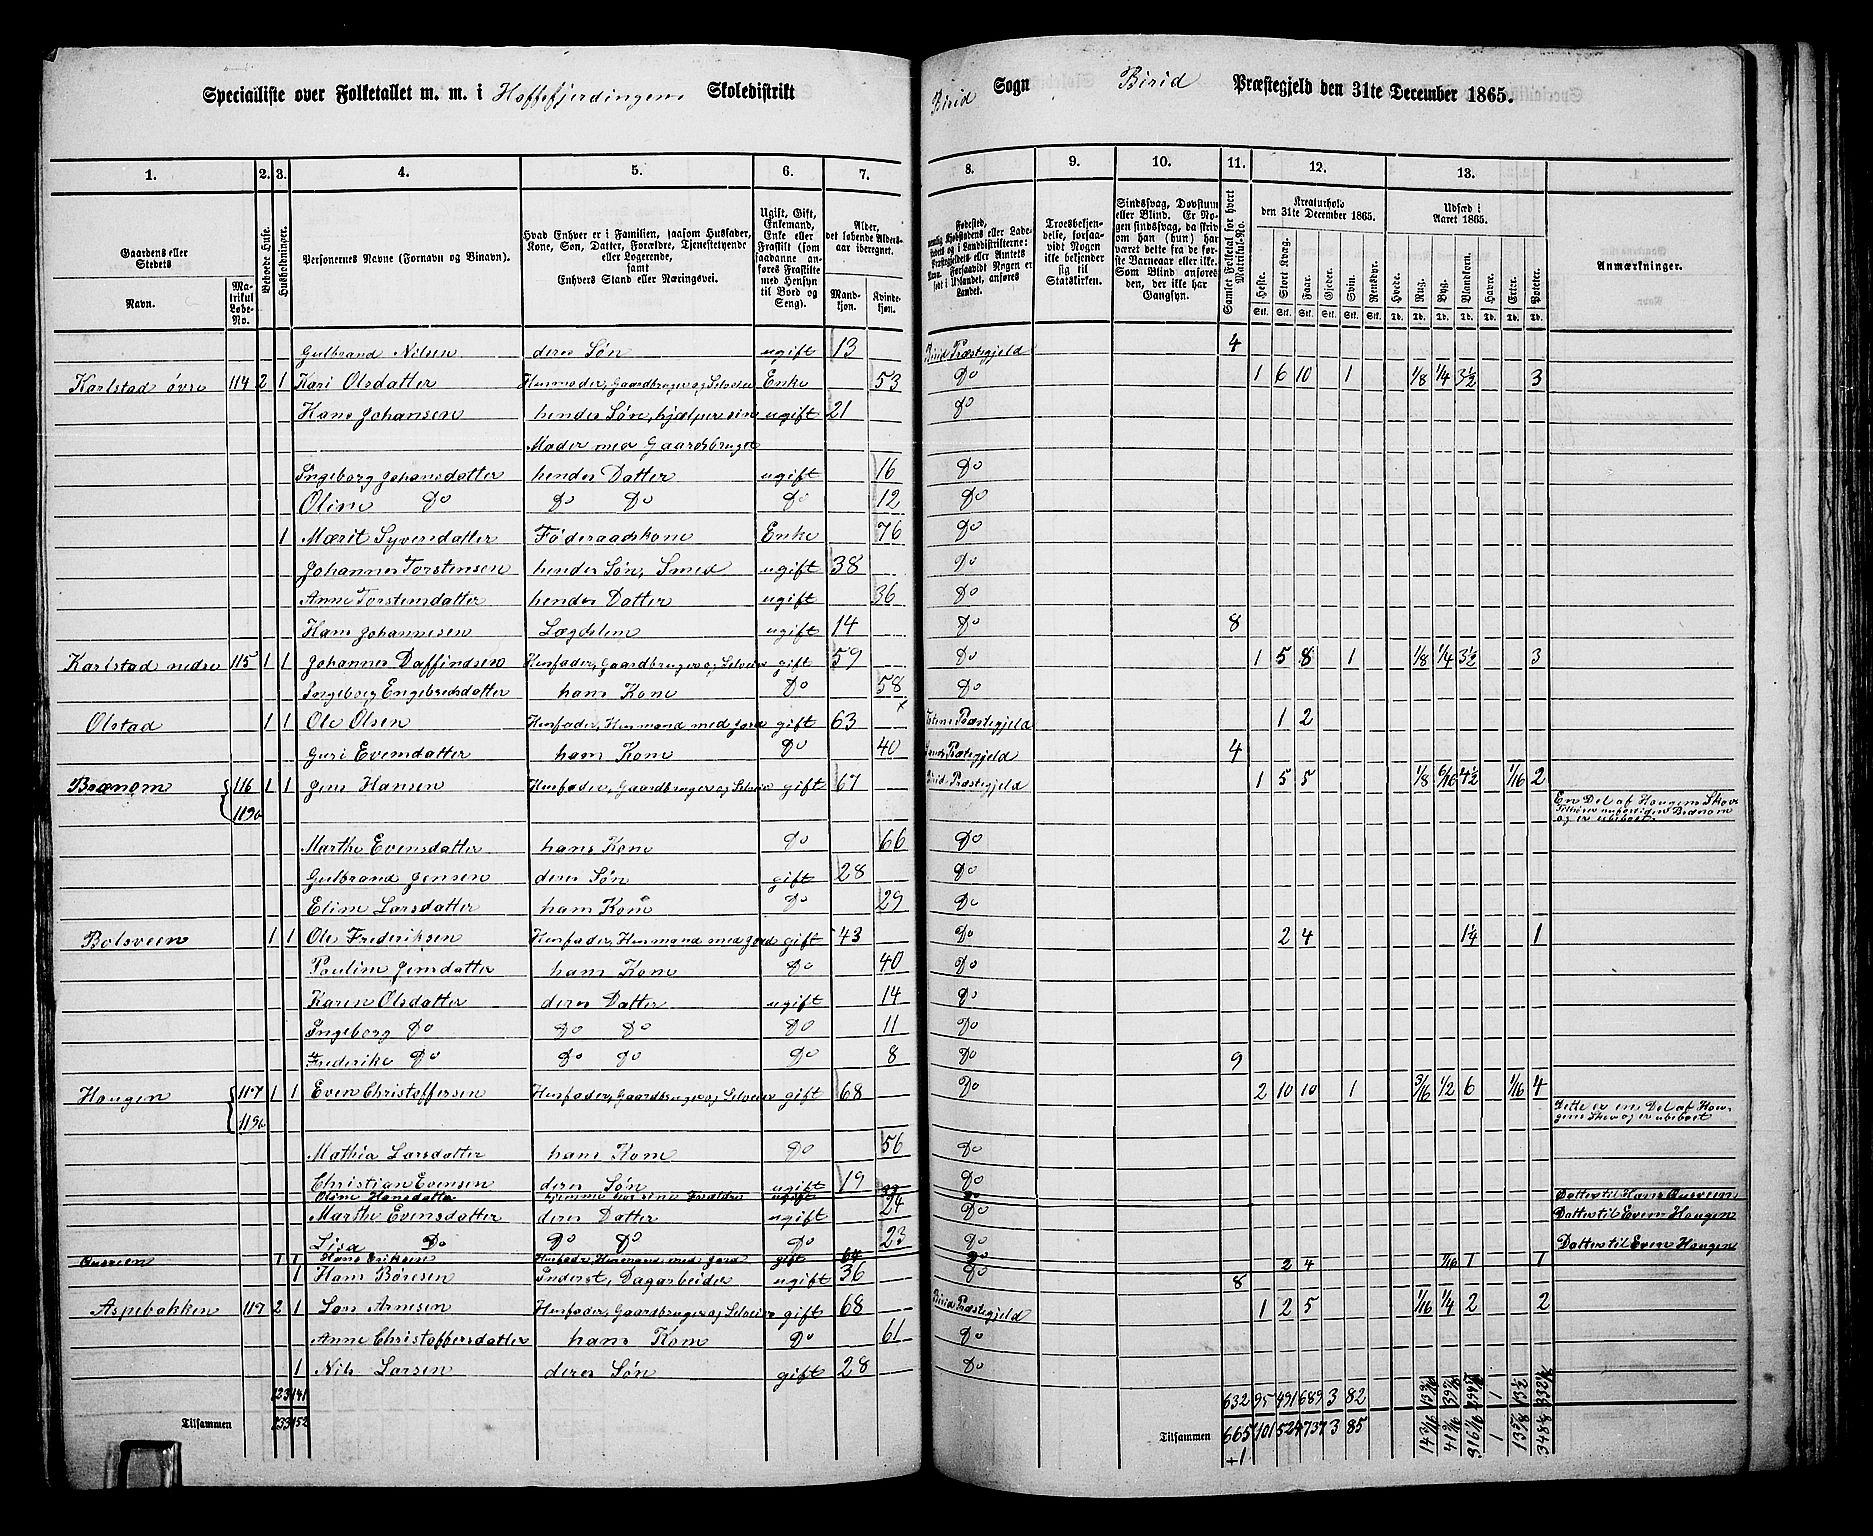 Specialliste over Folketallet m. m. i Hoffsfjerdingens Skoledistrikt Birid Sogn Birid Præstegjeld den 31te December 1865.
1. 2. 3. 4. 5. 6. 7. 8. 9. 10. 11. 12. 13.
Gaardens eller Stedets Navn. Matrikul Løbe-No. Beboede Huse. Husholdninger. Personernes Navne (Fornavn og Binavn). Hvad Enhver er i Familien, saasom Husfader, Kone, Søn, Datter, Forældre, Tjenestetyende eller Logerende, samt Enhvers Stand eller Næringsvei. Ugift, Gift, Enkemand, Enke eller Fraskilt (som saadanne anføres Fraskilte med Hensyn til Bord og Seng). Alder, det løbende Aldersaar iberegnet. Mandkjøn. Kvindekjøn.
Fødested, Troesbekjendelse, forsaavidt Nogen ikke bekjender sig til Statskirken. Sindssvag, Døvstum eller Blind. Er Nogen sindssvag, da skrives om han (hun) har været dette fra de første Barneaar eller ikke. Som Blind anføres den, der ikke har Gangsyn. Samlet Folketal for hvert Matrikul-No. Kreaturhold den 31te December 1865. Udsæd i Aaret 1865. Anmærkninger.
Heste. Stort Kvæg. Faar. Gjeder. Svin. Rensdyr. Hvede. Rug. Byg. Blandkorn. Havre. Erter. Poteter.
Gulbrand Nilsen deres Søn ugift 13 Birid Præstegjeld 4
Karlstad øvre 114 2 1 Kari Olsdatter Husmoder, Gaardbruger og Selveier Enke 53 Do 1 6 10 1 1/8 1/4 3 1/2 3
Hans Johansen hendes Søn, hjælper sin ugift 21 Do
Moder med Gaardsbruget
Ingeborg Johansdatter hendes Datter ugift 16 Do
Oline Do Do Do Do 12 Do
1 Marit Syversdatter Føderaadskone Enke 76 Do
Johannes Torstensen hendes Søn, Smed ugift 38 Do
Anne Torstensdatter hendes Datter ugift 36 Do
Hans Johannesen Lægdslem ugift 14 Do 8
Karlstad nedre 115 1 1 Johannes Daffindsen Husfader, Gaardbruger og Selveier gift 59 Do 1 5 8 1 1/8 1/4 3 1/2 3
Ingeborg Engebretsdatter hans Kone Do 58 Do
Olstad 1 1 Ole Olsen Husfader, Husmand med Jord gift 63 Præstegjeld 1 2
Guri Evensdatter hans Kone Do 40 Præstegjeld 4
Brænom 116 1 1 Jens Hansen Husfader, Gaardbruger og Selveier gift 67 Birid Præstegjeld 1 5 5 1/8 6/16 4 1/2 1/16 2
119c En Del af Hougens Skov Brænom og er ubeboet.
Marthe Evensdatter hans Kone Do 66 Do
Gulbrand Jensen deres Søn gift 28 Do
Eline Larsdatter hans Kone Do 29 Do
Bolsveen 1 1 Ole Frederiksen Husfader, Husmand med Jord gift 43 Do 2 4 1 1/4 1
Pauline Jensdatter hans Kone Do 40 Do
Karen Olsdatter deres Datter ugift 14 Do
Ingeborg Do Do Do Do 11 Do
Frederike Do Do Do Do 8 Do 9
Hougen 117 1 1 Even Christoffersen Husfader, Gaardbruger og Selveier gift 68 Do 2 10 10 1 3/16 1/2 6 1/16 4
119c Dette er en Del af Hougens Skov og er ubeboet
Mathia Larsdatter hans Kone Do 56 Do
Christian Evensen deres Søn ugift 19 Do
Oline Hansdatter hjemme hos sine Forældre ugift Do Datter til Hans
Marthe Evensdatter deres Datter ugift 24 Do Datter til Even Hougen
Lisa Do Do Do Do 23 Do Datter til Even Hougen
1 1 Hans Eriksen Husfader, Husmand med Jord gift 64 Do 2 4 1/16 1 1
1 Hans Børesen Inderst, Dagarbeider ugift 36 Do 8
Aspebakken 117 2 1 Lars Arnesen Husfader, Gaardbruger og Selveier gift 68 Birid Præstegjeld 1 2 5 1/16 1/4 2 2
Anne Christoffersdatter hans Kone Do 61 Do
1 Nils Larsen deres Søn gift 28 Do
123 141 632 95 491 689 3 82
Tilsammen 133 152 Tilsammen 665 101 524 737 3 85
+1